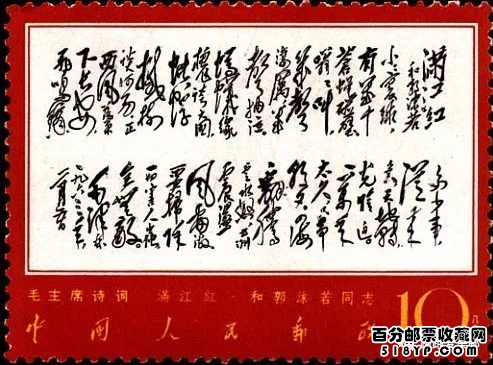 满江红
和郭沫若
小小寰球
有几个
苍蝇碰壁
嗡嗡叫
几声
凄厉几
声抽泣
蚂蚁缘
槐夸大国
蚍蜉
撼树
谈何易正
西风落叶
下长安
飞鸣镝
多少事
从来
急天地转
光阴迫
一万年
太久只争
朝夕四海
翻腾
云水怒五洲
震荡
风雷激
要扫除
一切害人虫
全无敌
毛泽东
毛主席诗词 满江红·和郭沫若同志
中国人民邮政
10
百分邮票收藏网
518YP.com